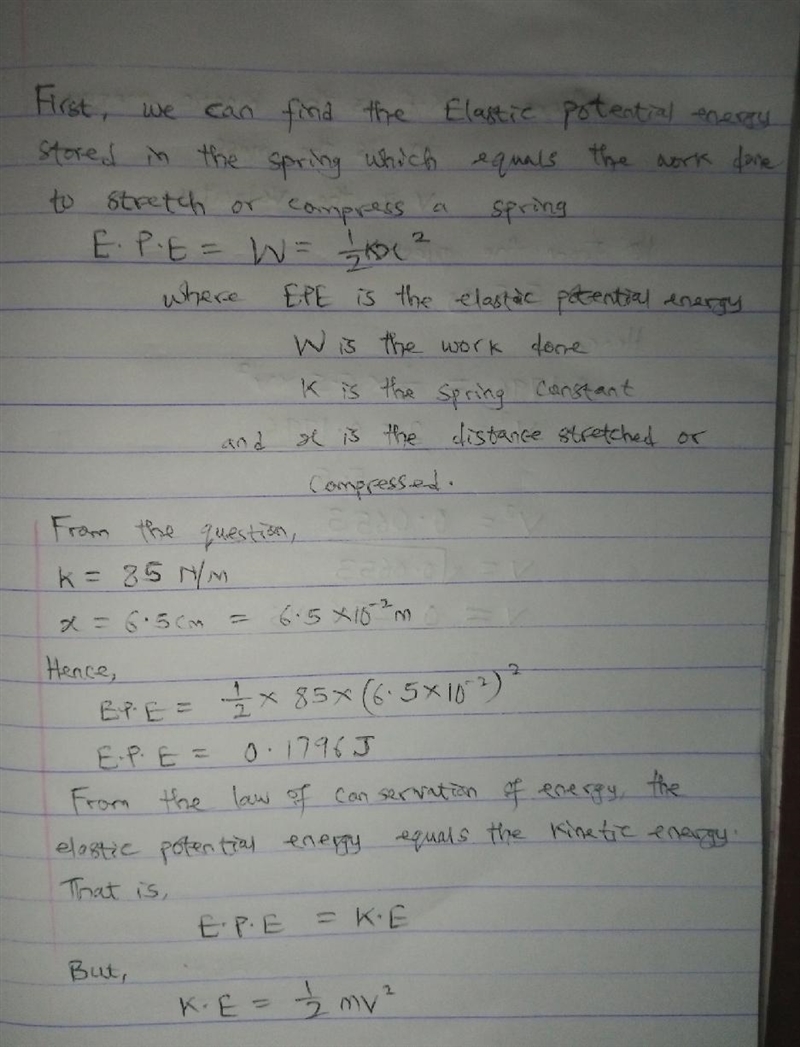 First, we can find the Elastic potential energy
stored in the spring which equals the work done
to stretch or compress a spring
E.P.E = W = 1/2 Kx²
where E.P.E is the elastic potential energy
W is the work done
K is the spring constant
and x is the distance stretched or
compressed.
From the question,
K = 85 N/M
x = 6.5cm = 6.5 x 10⁻² m
Hence,
E.P.E = 1/2 x 85 x (6.5 x 10⁻²)²
E.P.E = 0.1796J
From the law of conservation of energy, the
elastic potential energy equals the kinetic energy.
That is,
E.P.E = K.E
But,
K.E = 1/2 mv²